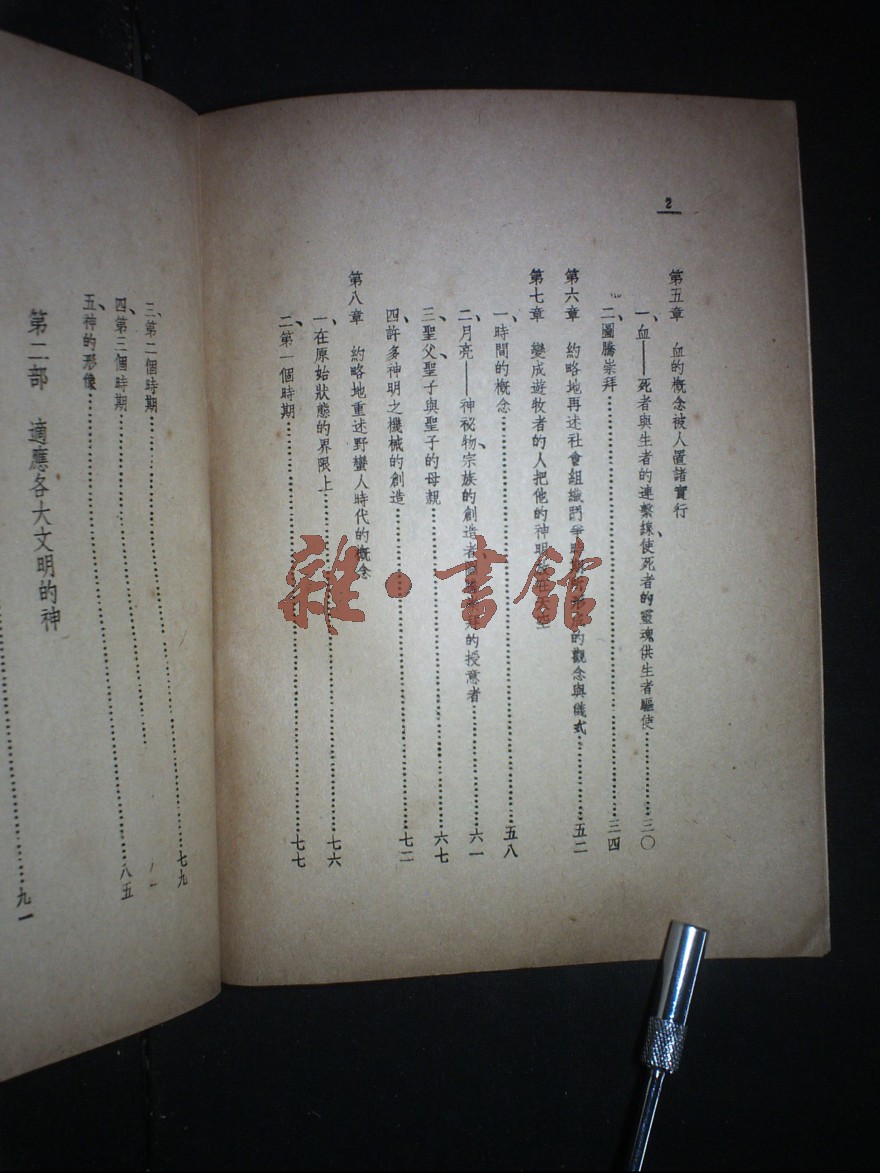 2
第五章 血的概念被人置諸實行
一、血——死者與生者的連繫線、使死者的靈魂供生者驅使……三〇
二、圖騰崇拜……三四
第六章 約略地再述社會組織鬥爭時期所形成的觀念與儀式……五二
第七章 變成遊牧者的人把他的神明放在天空
一、時間的概念……五八
二、月亮——神祕物、宗族的創造者、的授意者……六一
三、聖父、聖子與聖子的母親……六七
四、許多神明之機械的創造……七二
第八章 約略地重述野蠻人時代的概念
一、在原始狀態的界限上……七六
二、第一個時期……七七
三、第二個時期……七九
四、第三個時期……
五、神的形像……八五
第二部 適應各大文明的神
……九一
雜·書館